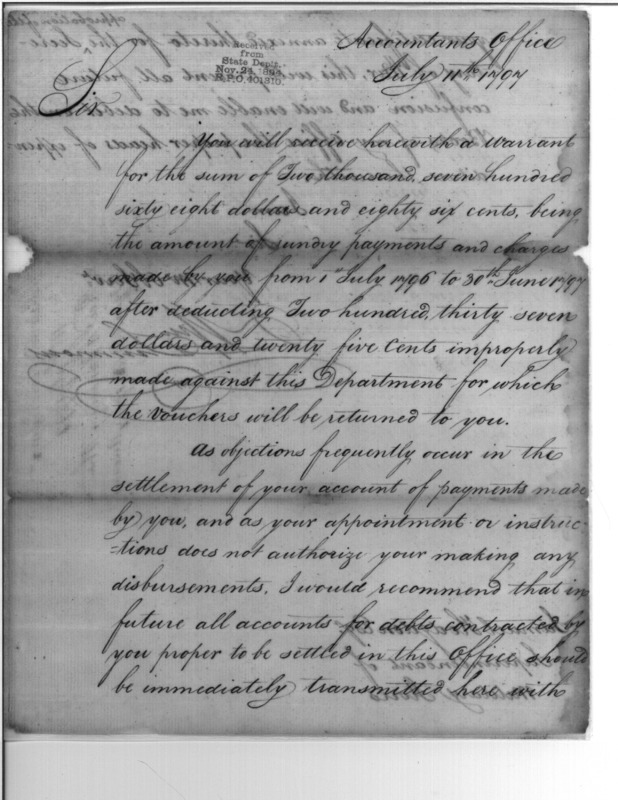 Accountants Office
July 11th 1797
Received
from
State Dept.
Nov. 24, 1894
R.P.O. 401310.
Sir
You will receive herewith a warrant
for the sum of Two thousand, seven hundred
sixty eight dollars and eighty six cents, being
the amount of sundry payments and charges
made by you from 1st July 1796 to 30th June 1797
after deducting Two hundred, thirty seven
dollars and twenty five Cents improperly
made against this Department for which
the vouchers will be returned to you.
As objections frequently occur in the
settlement of your account of payments made
by you, and as your appointment or instruc-
=tions does not authorize your making any
disbursements, I would recommend that in
future all accounts for debts contracted by
you proper to be settled in this Office should
be immediately transmitted here with